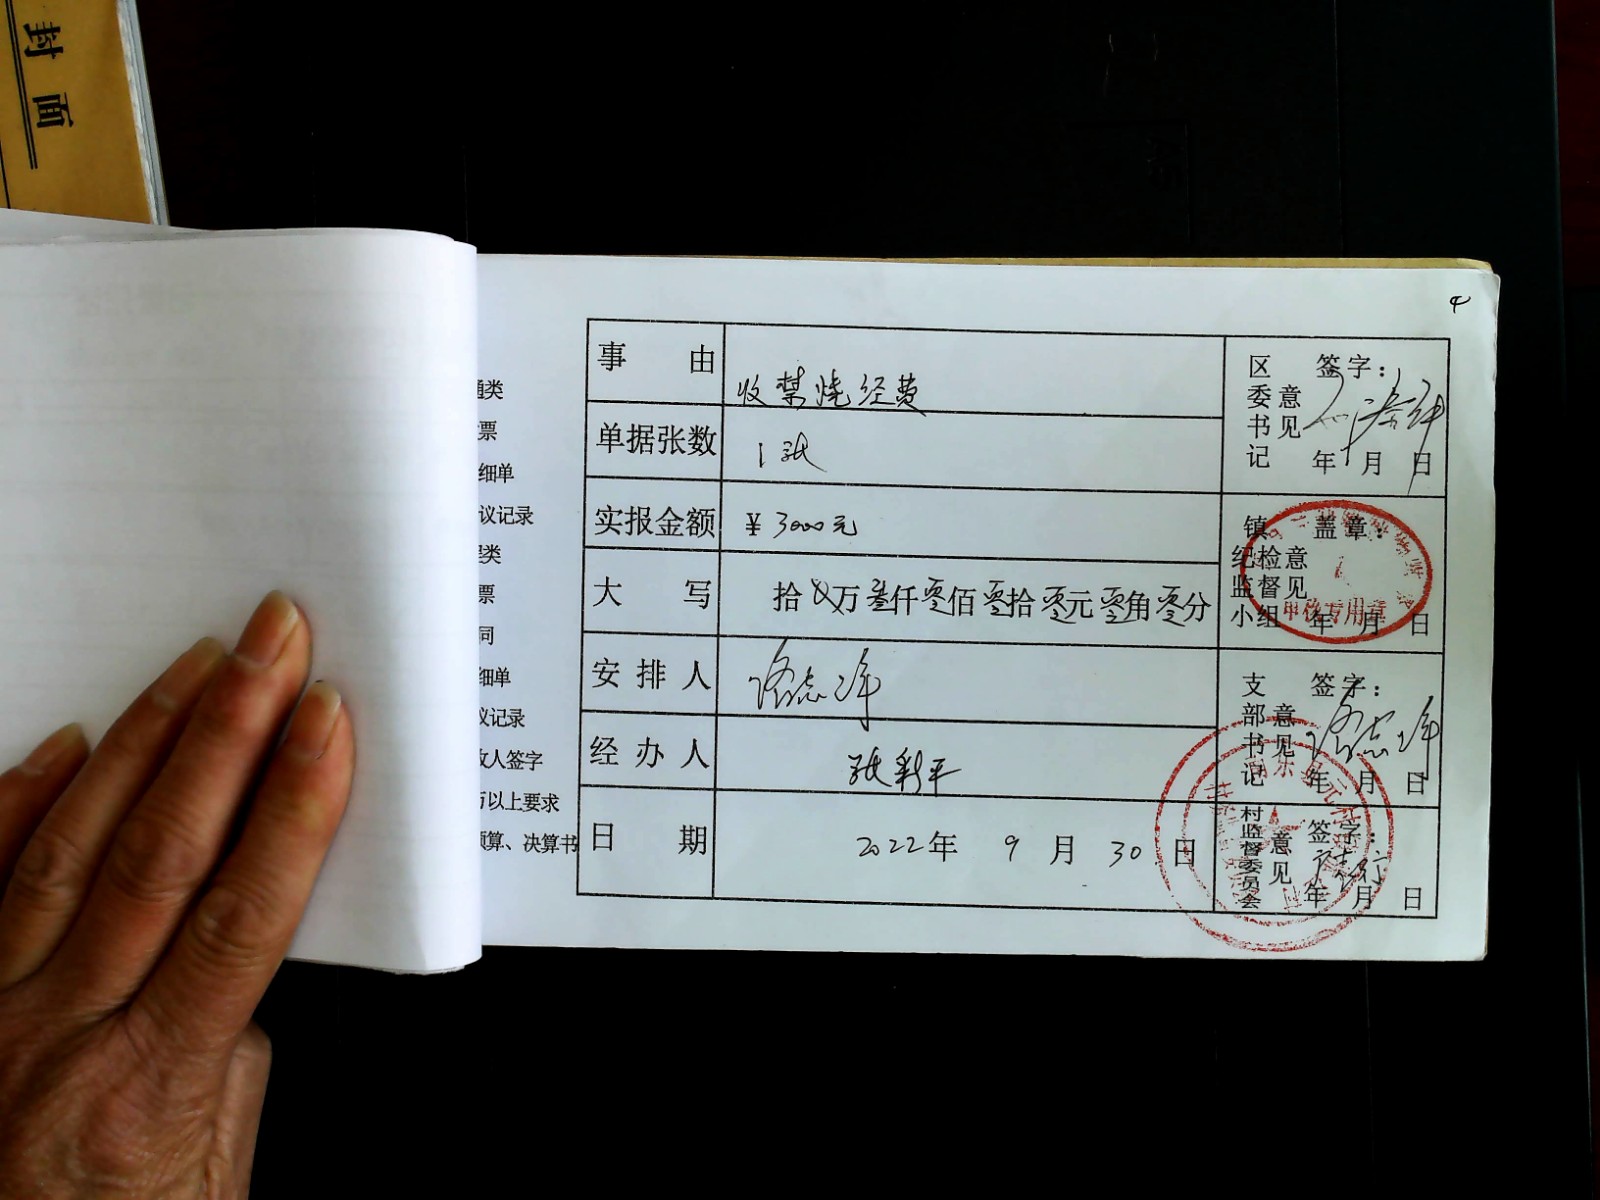 封面
4
事由
收禁烧经费
单据张数
1张
实报金额
¥3000元
大写
拾 万叁仟零佰零拾零元零角零分
安排人
经办人
张彩平
日期
2022年 9 月 30 日
区委书记意见
签字:
年 月 日
镇纪检监督小组意见
盖章:
审核专用章
年 月 日
支部书记意见
签字:
年 月 日
村监督委员会意见
签字:
年 月 日
类
票
细单
议记录
类
票
同
细单
议记录
人签字
万以上要求
算、决算书